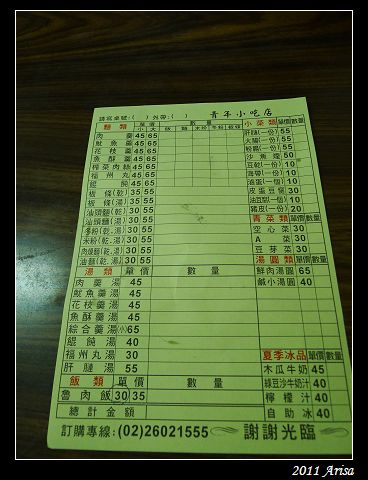 請寫桌號:( ) 外帶:( ) 青年小吃店
麵類 單價 數量
小 大 飯 麵 米粉 冬粉 板條
肉羹 45 65
魷魚羹 45 65
花枝羹 45 65
魚酥羹 45 65
榨菜肉絲 45 65
福州丸 45 65
餛飩 45 60
板條(乾) 35 55
板條(湯) 35 55
汕頭麵(乾) 30 55
汕頭麵(湯) 30 55
冬粉(乾.湯) 30 55
米粉(乾.湯) 30 55
肉燥麵(乾.湯) 30 55
油麵(乾.湯) 30 55
湯類 單價 數量
肉羹湯 45
魷魚羹湯 45
花枝羹湯 45
魚酥羹湯 45
綜合羹湯(小) 65
餛飩湯 40
福州丸湯 30
肝腱湯 55
飯類 單價 數量
魯肉飯 30 35
總計金額
小菜類 單價 數量
肝腱(一份) 55
大腸(一份) 55
粉腸(一份) 55
沙魚煙 50
豆乾(一份) 10
海帶(一份) 10
滷蛋(一份) 10
皮蛋豆腐 30
油豆腐(一份) 10
豬皮(一份) 20
青菜類 單價 數量
空心菜 30
A菜 30
豆芽菜 30
湯圓類 單價 數量
鮮肉湯圓 65
鹹小湯圓 40
夏季冰品 單價 數量
木瓜牛奶 45
綠豆沙牛奶汁 40
檸檬汁 40
自助冰 40
訂購專線:(02)26021555 謝謝光臨
2011 Arisa